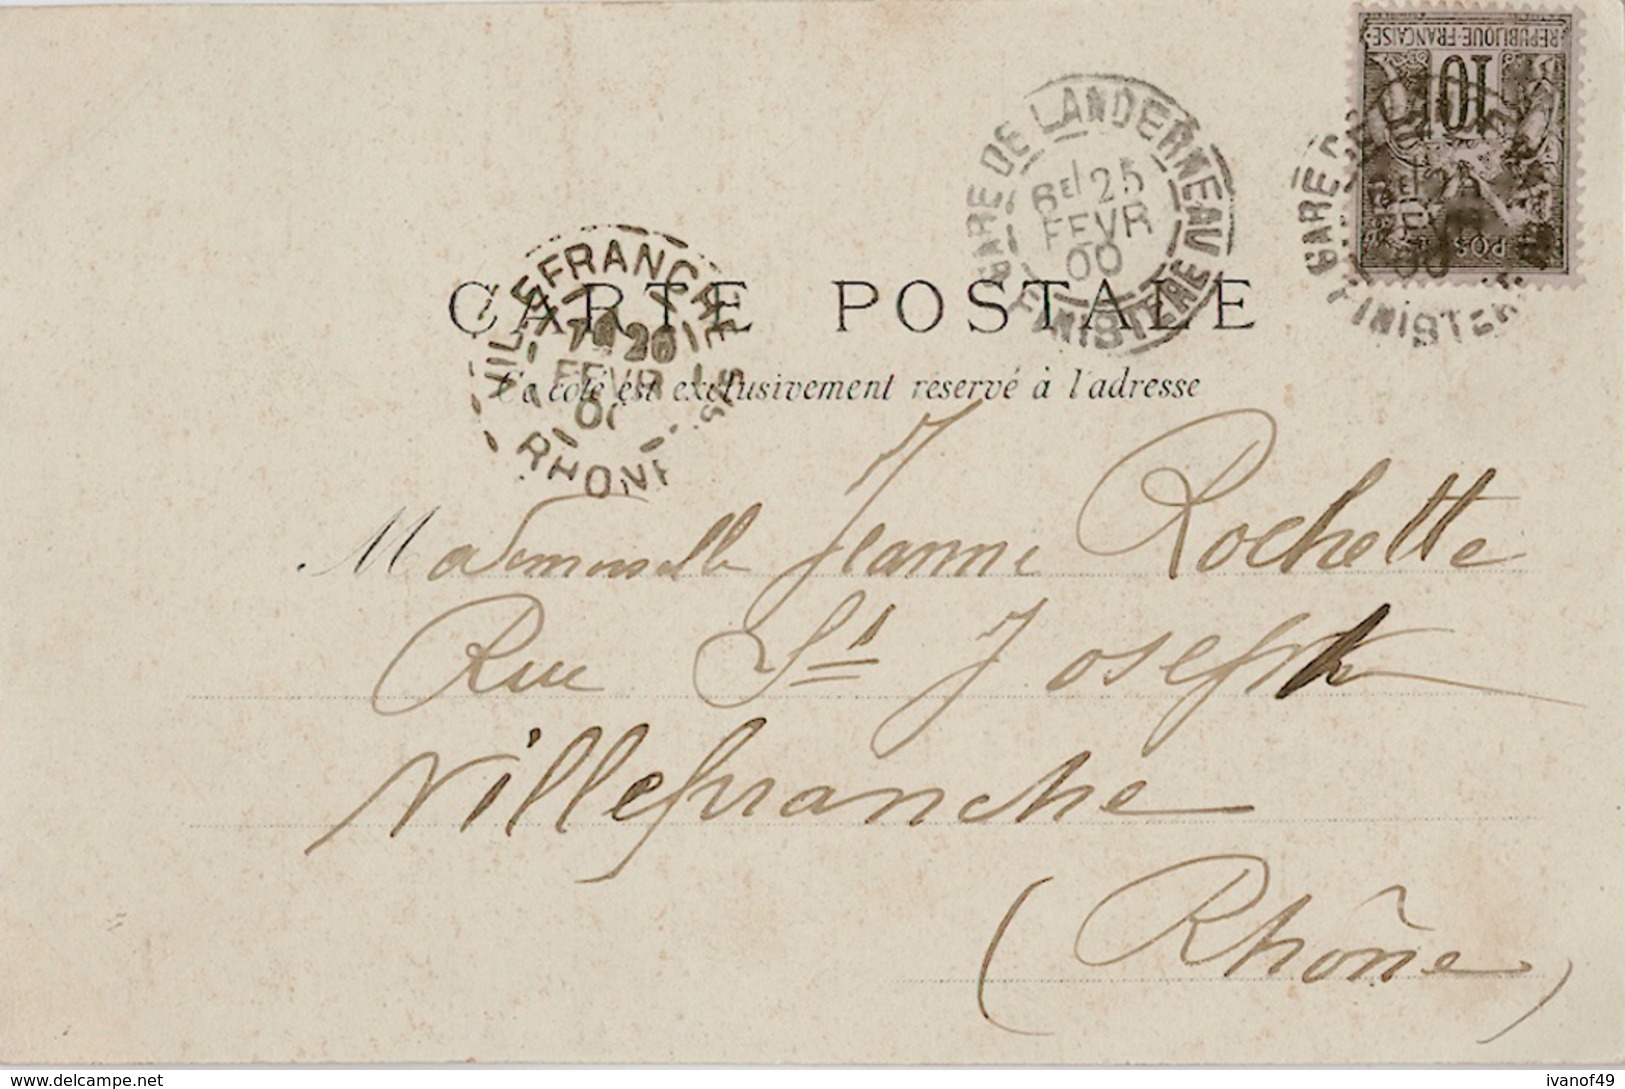 RÉPUBLIQUE FRANÇAISE
10
POS
GARE DE LANDERNEAU
6E 25
FEVR
00
FINISTERE
GARE
FINISTERE
VILLEFRANCHE
26
FEVR
RHONE
CARTE POSTALE
Ce côté est exclusivement réservé à l'adresse
Mademoiselle Jeanne Rochette
Rue St Joseph
Villefranche
(Rhône)
www.delcampe.net
ivanof49